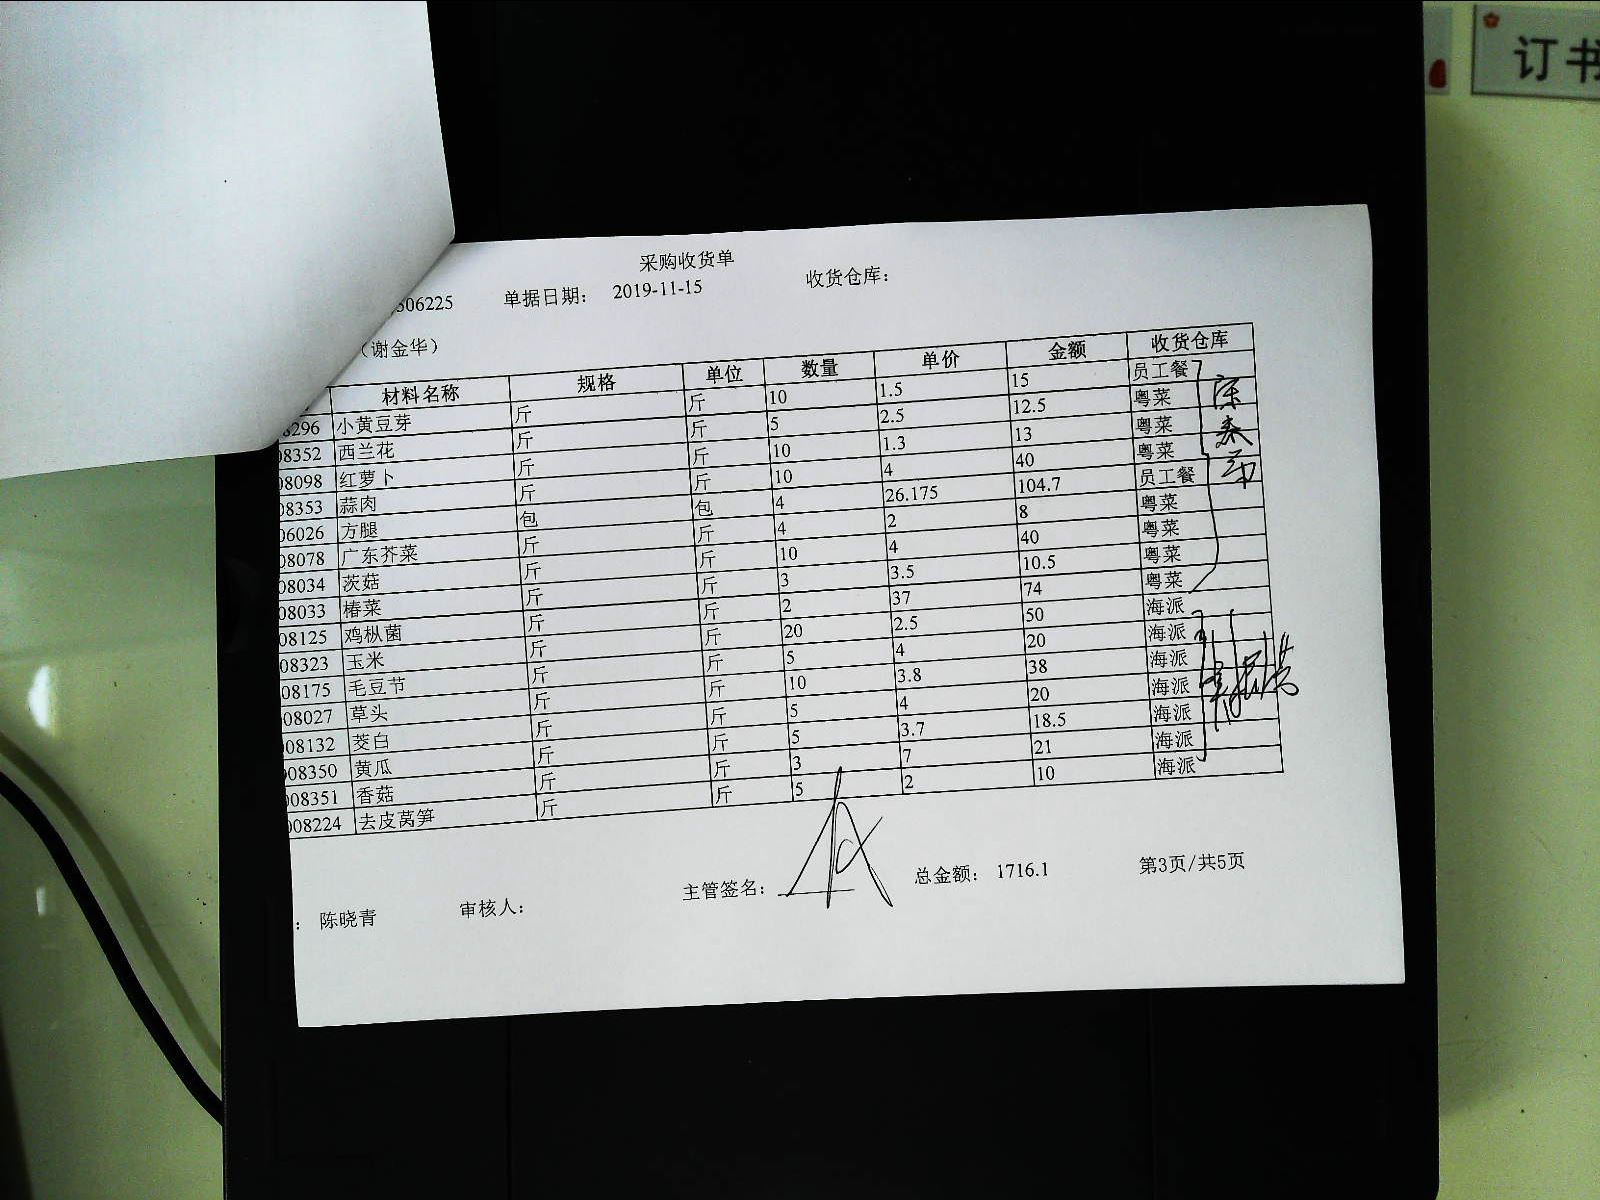 订书
采购收货单
506225 单据日期： 2019-11-15 收货仓库：
（谢金华）
材料名称 规格 单位 数量 单价 金额 收货仓库
8296 小黄豆芽 斤 斤 10 1.5 15 员工餐
08352 西兰花 斤 斤 5 2.5 12.5 粤菜
08098 红萝卜 斤 斤 10 1.3 13 粤菜
08353 蒜肉 斤 斤 10 4 40 粤菜
06026 方腿 包 包 4 26.175 104.7 员工餐
08078 广东芥菜 斤 斤 4 2 8 粤菜
08034 茨菇 斤 斤 10 4 40 粤菜
08033 椿菜 斤 斤 3 3.5 10.5 粤菜
08125 鸡枞菌 斤 斤 2 37 74 粤菜
08323 玉米 斤 斤 20 2.5 50 海派
08175 毛豆节 斤 斤 5 4 20 海派
08027 草头 斤 斤 10 3.8 38 海派
08132 茭白 斤 斤 5 4 20 海派
08350 黄瓜 斤 斤 5 3.7 18.5 海派
08351 香菇 斤 斤 3 7 21 海派
008224 去皮莴笋 斤 斤 5 2 10 海派
： 陈晓青 审核人： 主管签名： 总金额： 1716.1 第3页/共5页